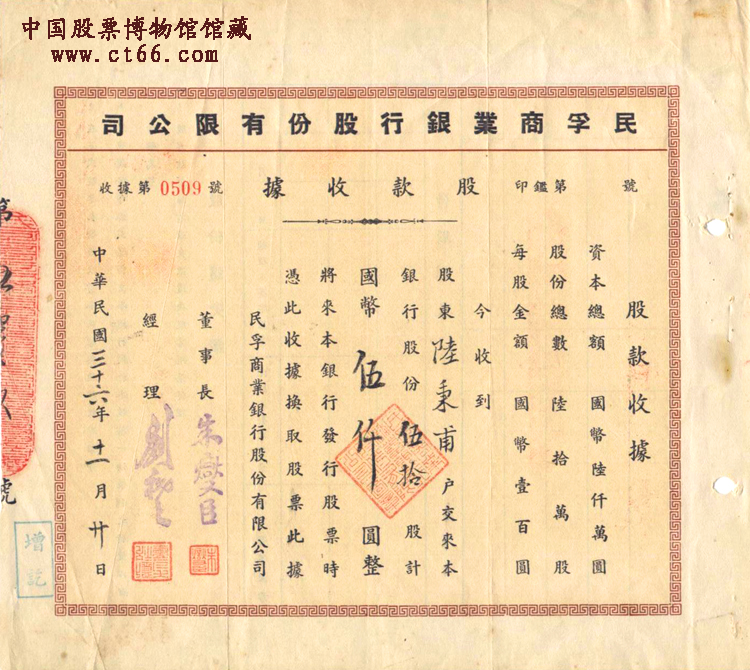 中国股票博物馆馆藏
www.ct66.com
民孚商業銀行股份有限公司
印鑑第 號
股款收據
收據第0509號
股款收據
資本總額 國幣陸仟萬圓
股份總數 陸拾萬股
每股金額 國幣壹百圓
今收到
股東陸秉甫戶交來本
銀行股份伍拾股計
國幣伍仟圓整
將來本銀行發行股票時
憑此收據換取股票此據
民孚商業銀行股份有限公司
董事長
經理
中華民國三十六年十一月廿日
第
號
增記